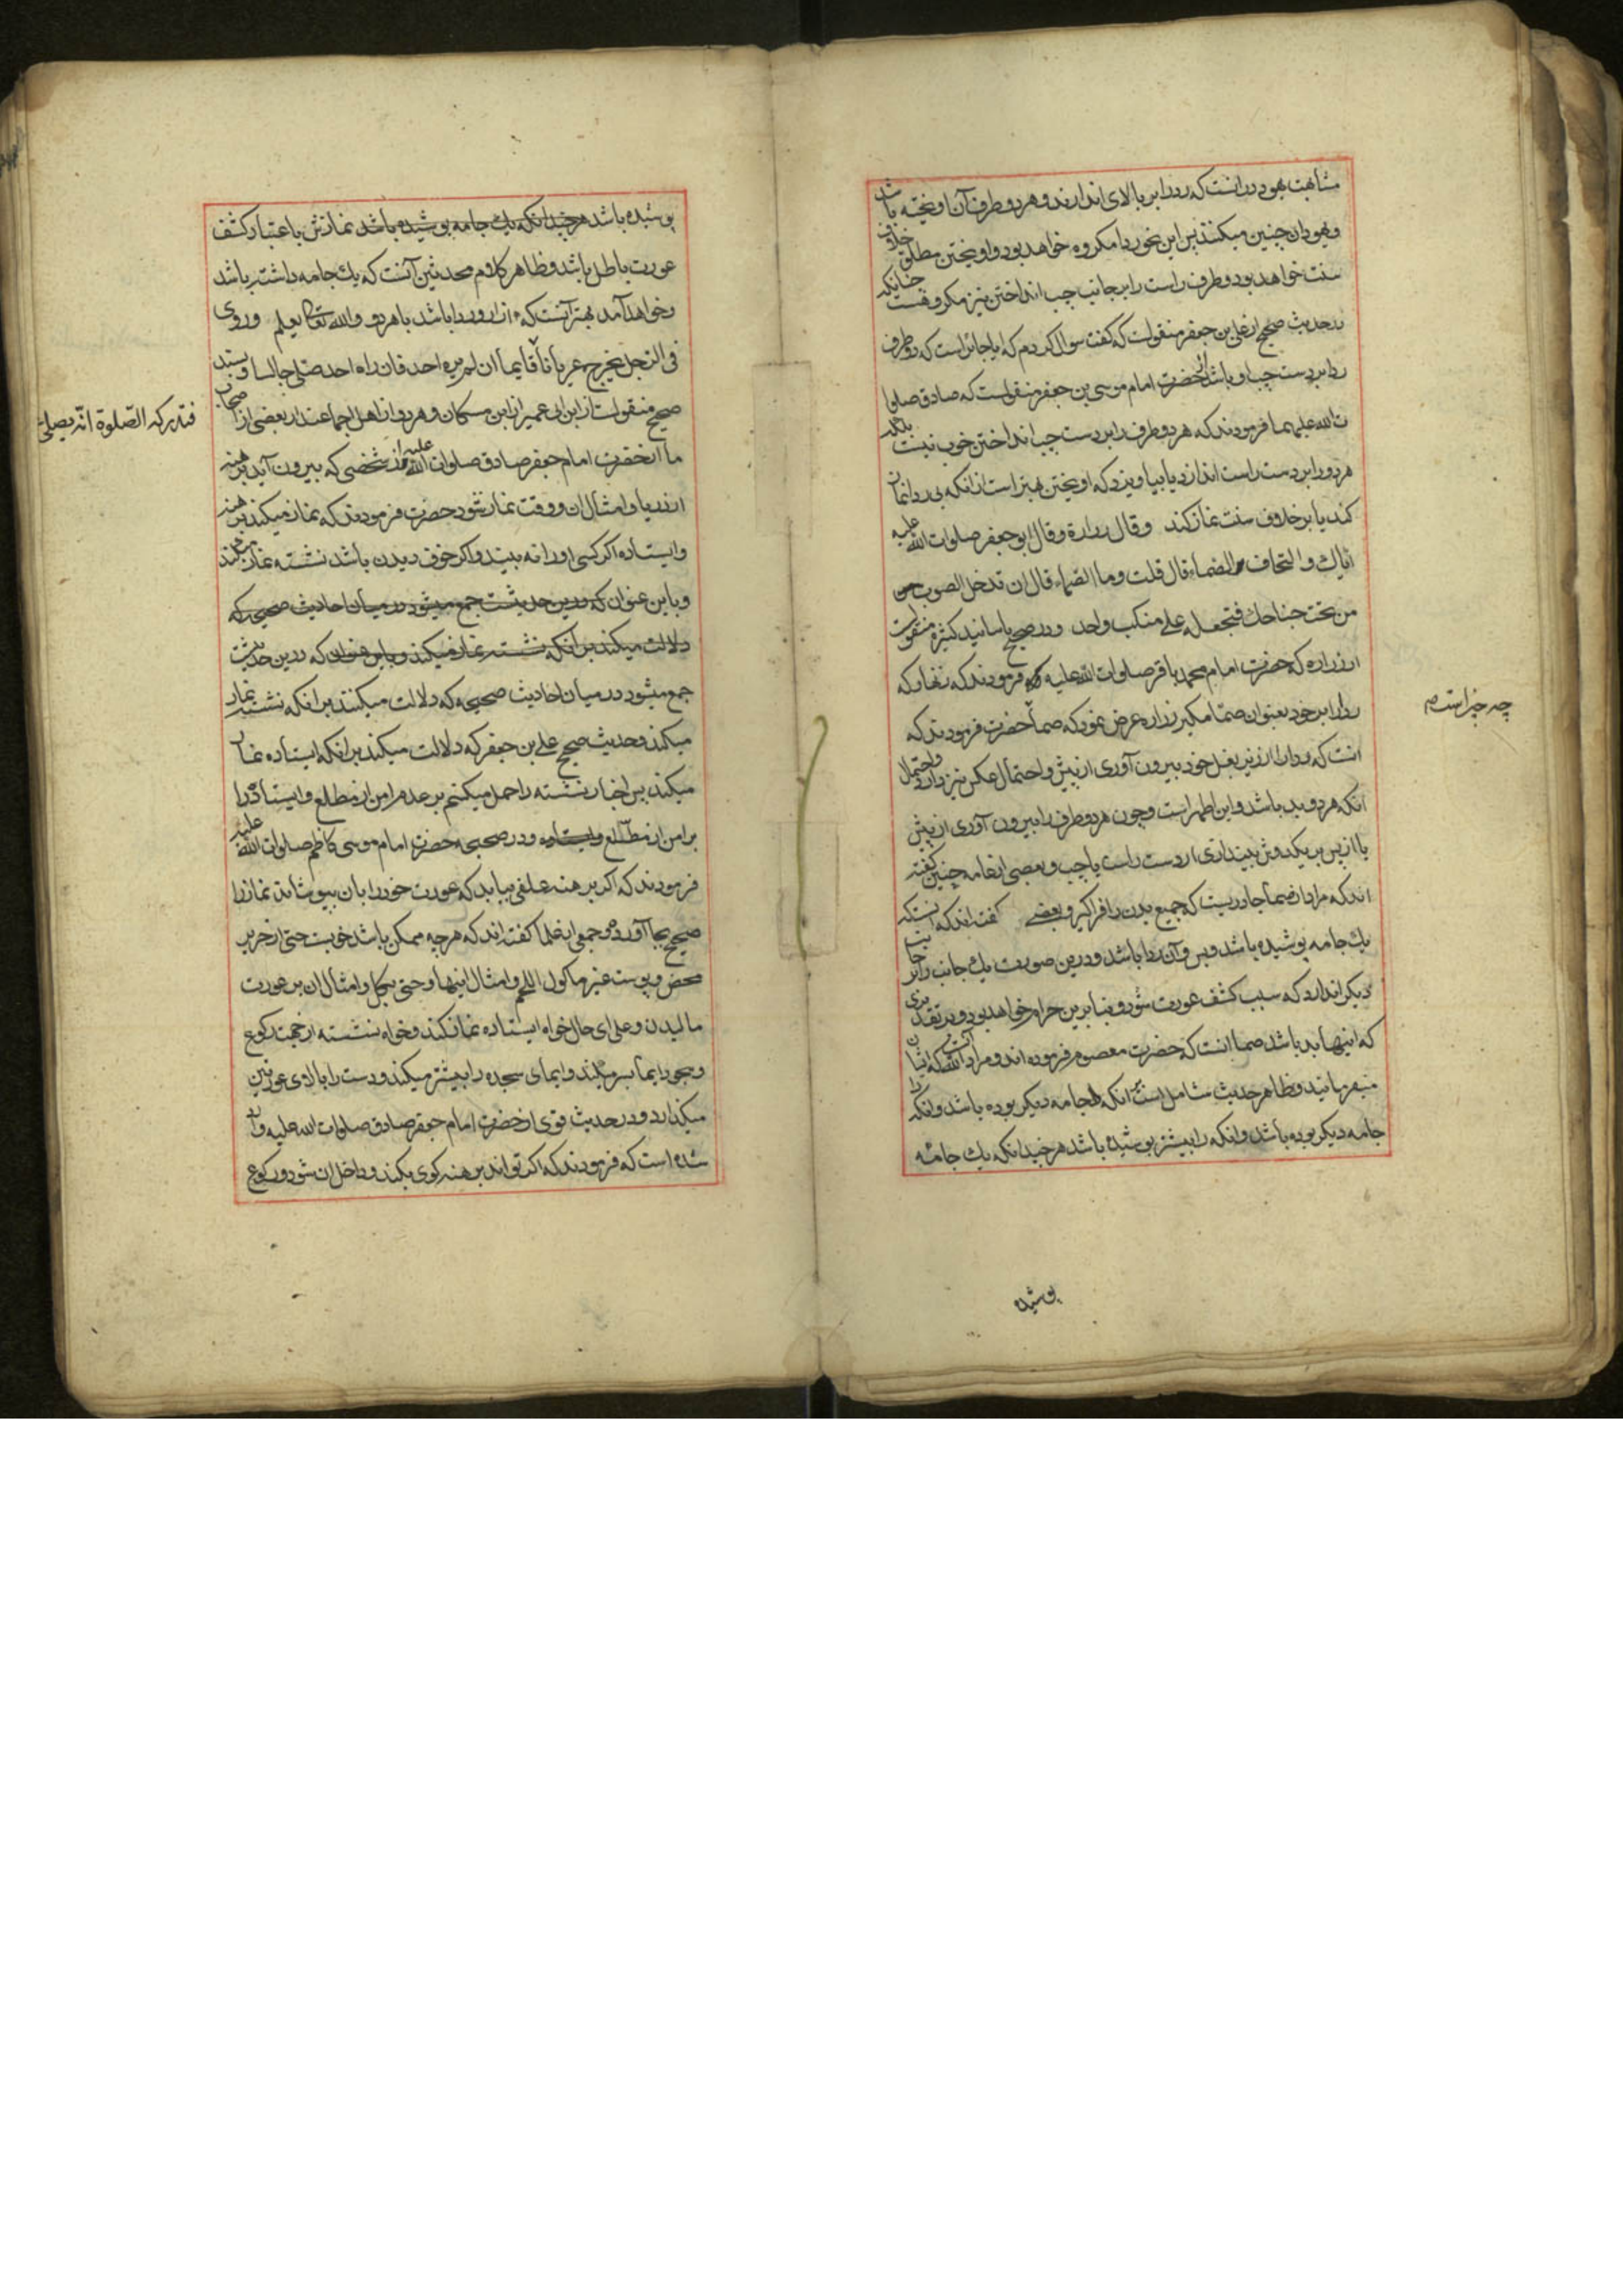 مشابهت بهود درانست که ردا بر بالای اندازند و هر دو طرف آن اویخته باشد
و یهودان چنین میکنند پس این نحو ردا مکروه خواهد بود و اویختن مطلق خلاف
سنت خواهد بود و طرف راست را بر جانب چپ انداختن نیز مکروهست چنانکه
در حدیث صحیح از علی بن جعفر منقولست که گفت سوال کردم که ایا جائز است که دو طرف
ردا بر دست چپ او باشد از حضرت امام موسی بن جعفر منقولست که صادق صلوا
ت الله علیهما فرمودند که هر دو طرف را بر دست چپ انداختن خوب نیست بلکه
هر دو را بر دست راست اندازد یا بیاویزد که اویختن بهتر است از انکه بی ردا نماز
کند یا بر خلاف سنت نماز کند وقال زرارة وقال ابو جعفر صلوات الله علیه
ایاك والتحاف الصماء قال قلت وما الصماء قال ان تدخل الصوب
من تحت جناحك فتجعله علی منکب واحد و در صحیح باسانید کثیره منقولست
از زراره که حضرت امام محمد باقر صلوات الله علیه فرمودند که نغار که
ردا را بر خود بعنوان صما مکیر زراره عرض نمود که صما حضرت فرمودند که
چه چیز است م
انست که ردا را از زیر بغل خود بیرون آوری از پیش و احتمال عکس نیز دارد و احتمال
انکه هر دو بد باشد و این اظهر است و چون هر دو طرف را بیرون آوری از پیش
یا از پس بر یکدوش بیندازی از دست راست یا چپ و بعضی از عامه چنین گفته
اند که مراد از صما چادریست که جمیع بدن را فراگیرد و بعضی گفته اند که انستکه
یك جامه پوشیده باشد و بس و آن ردا باشد و درین صورت یك جانب را بر جانب
دیگر اندازد که سبب کشف عورت شود و بنا برین حرام خواهد بود و بر تقدیری
که اینها بد باشد صما انست که حضرت معصوم فرموده اند و مراد الله انست که ایشان
میفرمایند و ظاهر حدیث شامل است انکه جامه دیگر بوده باشد و انکه
جامه دیگر بوده باشد و انکه را پیشتر پوشیده باشد هر چند انکه یك جامه
پوشیده
پوشیده باشد هر چند انکه یك جامه پوشیده باشد نمازش باعتبار کشف
عورت باطل باشد و ظاهر کلام محدثین آنست که یك جامه داشته باشد
و خواهد آمد بهتر آنست که ازار و ردا باشد یا هر دو والله تعالی یعلم وروی
فی الرجل یخرج عریانا قایما ان لم یره احد فان راه احد صلی جالسا و بسند
فتدرکه الصلوة انه یصلی
صحیح منقولست از ابن ابی عمیر از ابن مسکان و هر دو از اهل اجماعند از بعضی از اصحاب
ما از حضرت امام جعفر صادق صلوات الله علیه از شخصی که بیرون آید برهنه
از دریا و امثال ان و وقت نماز شود حضرت فرمودند که نماز میکند برهنه
و ایستاده اگر کسی او را نه بیند و اگر خوف دیدن باشد نشسته نماز میکند
و باین عنوان که درین حدیثست جمع میشود در میان احادیث صحیحه که
دلالت میکند بر انکه نشسته نماز میکند و باین عنوان که درین حدیثست
جمع میشود در میان احادیث صحیحه که دلالت میکنند بر انکه نشسته نماز
میکند و حدیث صحیح علی بن جعفر که دلالت میکند بر انکه ایستاده نماز
میکند پس اخبار نشسته را حمل میکنیم بر عدم امن از مطلع و ایستاده را
بر امن از مطلع و ایستاده و در صحیحه حضرت امام موسی کاظم صلوات الله علیه
فرمودند که اگر برهنه علفی بیابد که عورت خود را بان بپوشاند نماز را
صحیح بجا آورد و جمعی از علما گفته اند که هر چه ممکن باشد خوبست حتی از حریر
محض و پوست غیر ماکول اللحم و امثال اینها و حتی بگل و امثال ان بر عورت
مالیدن و علی ای حال خواه ایستاده نماز کند و خواه نشسته از جهت رکوع
و سجود ایما بسر میکند و ایمای سجده را بیشتر میکند و دست را بالای عورتین
میگذارد و در حدیث قوی از حضرت امام جعفر صادق صلوات الله علیه وارد
شده است که فرمودند که اگر تواند برهنه کوی بکند و داخل ان شود و رکوع